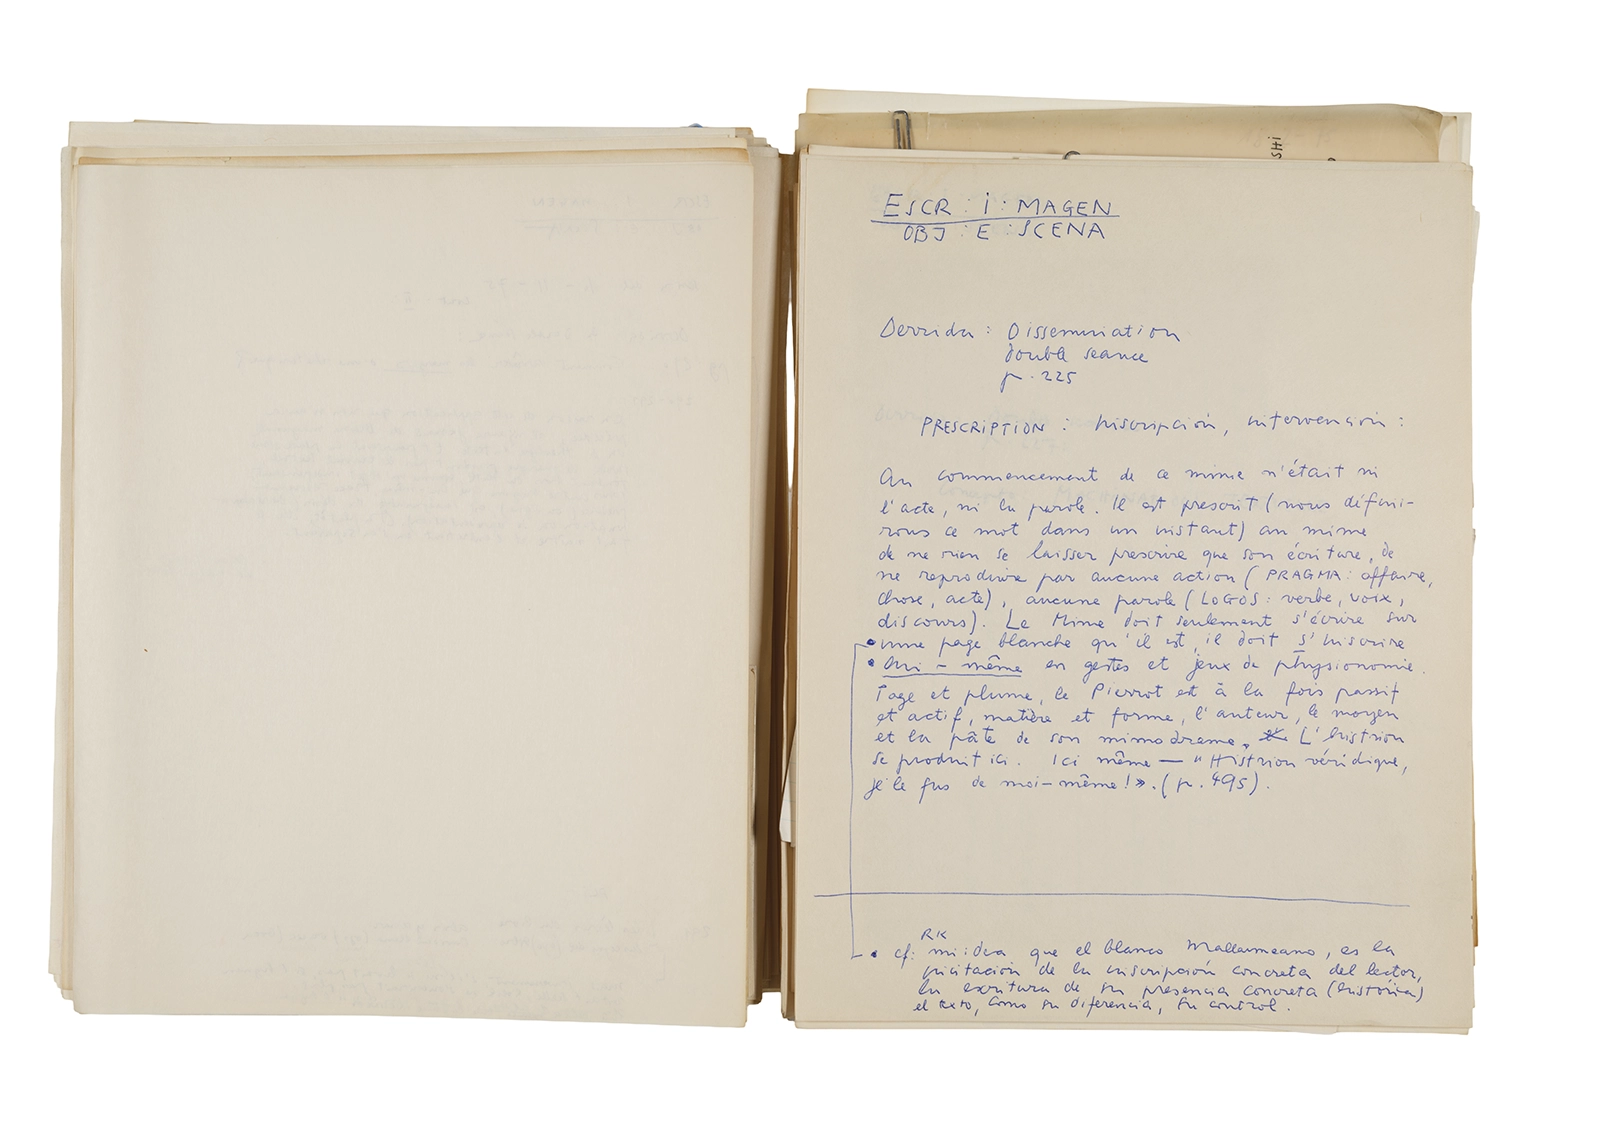 SHI
ESCR : I : MAGEN
OBJ : E : SCENA
Derrida : Dissemination
double seance
p. 225
PRESCRIPTION : Inscripción, intervención :
Au commencement de ce mime n'était ni
l'acte, ni la parole. Il est prescrit (nous défini-
rons ce mot dans un instant) au mime
de ne rien se laisser prescrire que son écriture, de
ne reproduire par aucune action (PRAGMA : affaire,
chose, acte), aucune parole (LOGOS : verbe, voix,
discours). Le Mime doit seulement s'écrire sur
une page blanche qu'il est, il doit s'inscrire
lui-même en gestes et jeux de physionomie.
Page et plume, le Pierrot est à la fois passif
et actif, matière et forme, l'auteur, le moyen
et la pâte de son mimodrame. L'histrion
se produit ici. Ici même — "Histrion véridique,
je le fus de moi-même!». (p. 495).
RK
cf: mi idea que el blanco Mallarmeano, es la
incitación de la inscripción concreta del lector,
la escritura de su presencia concreta (histórica)
el texto, como su diferencia, su control.